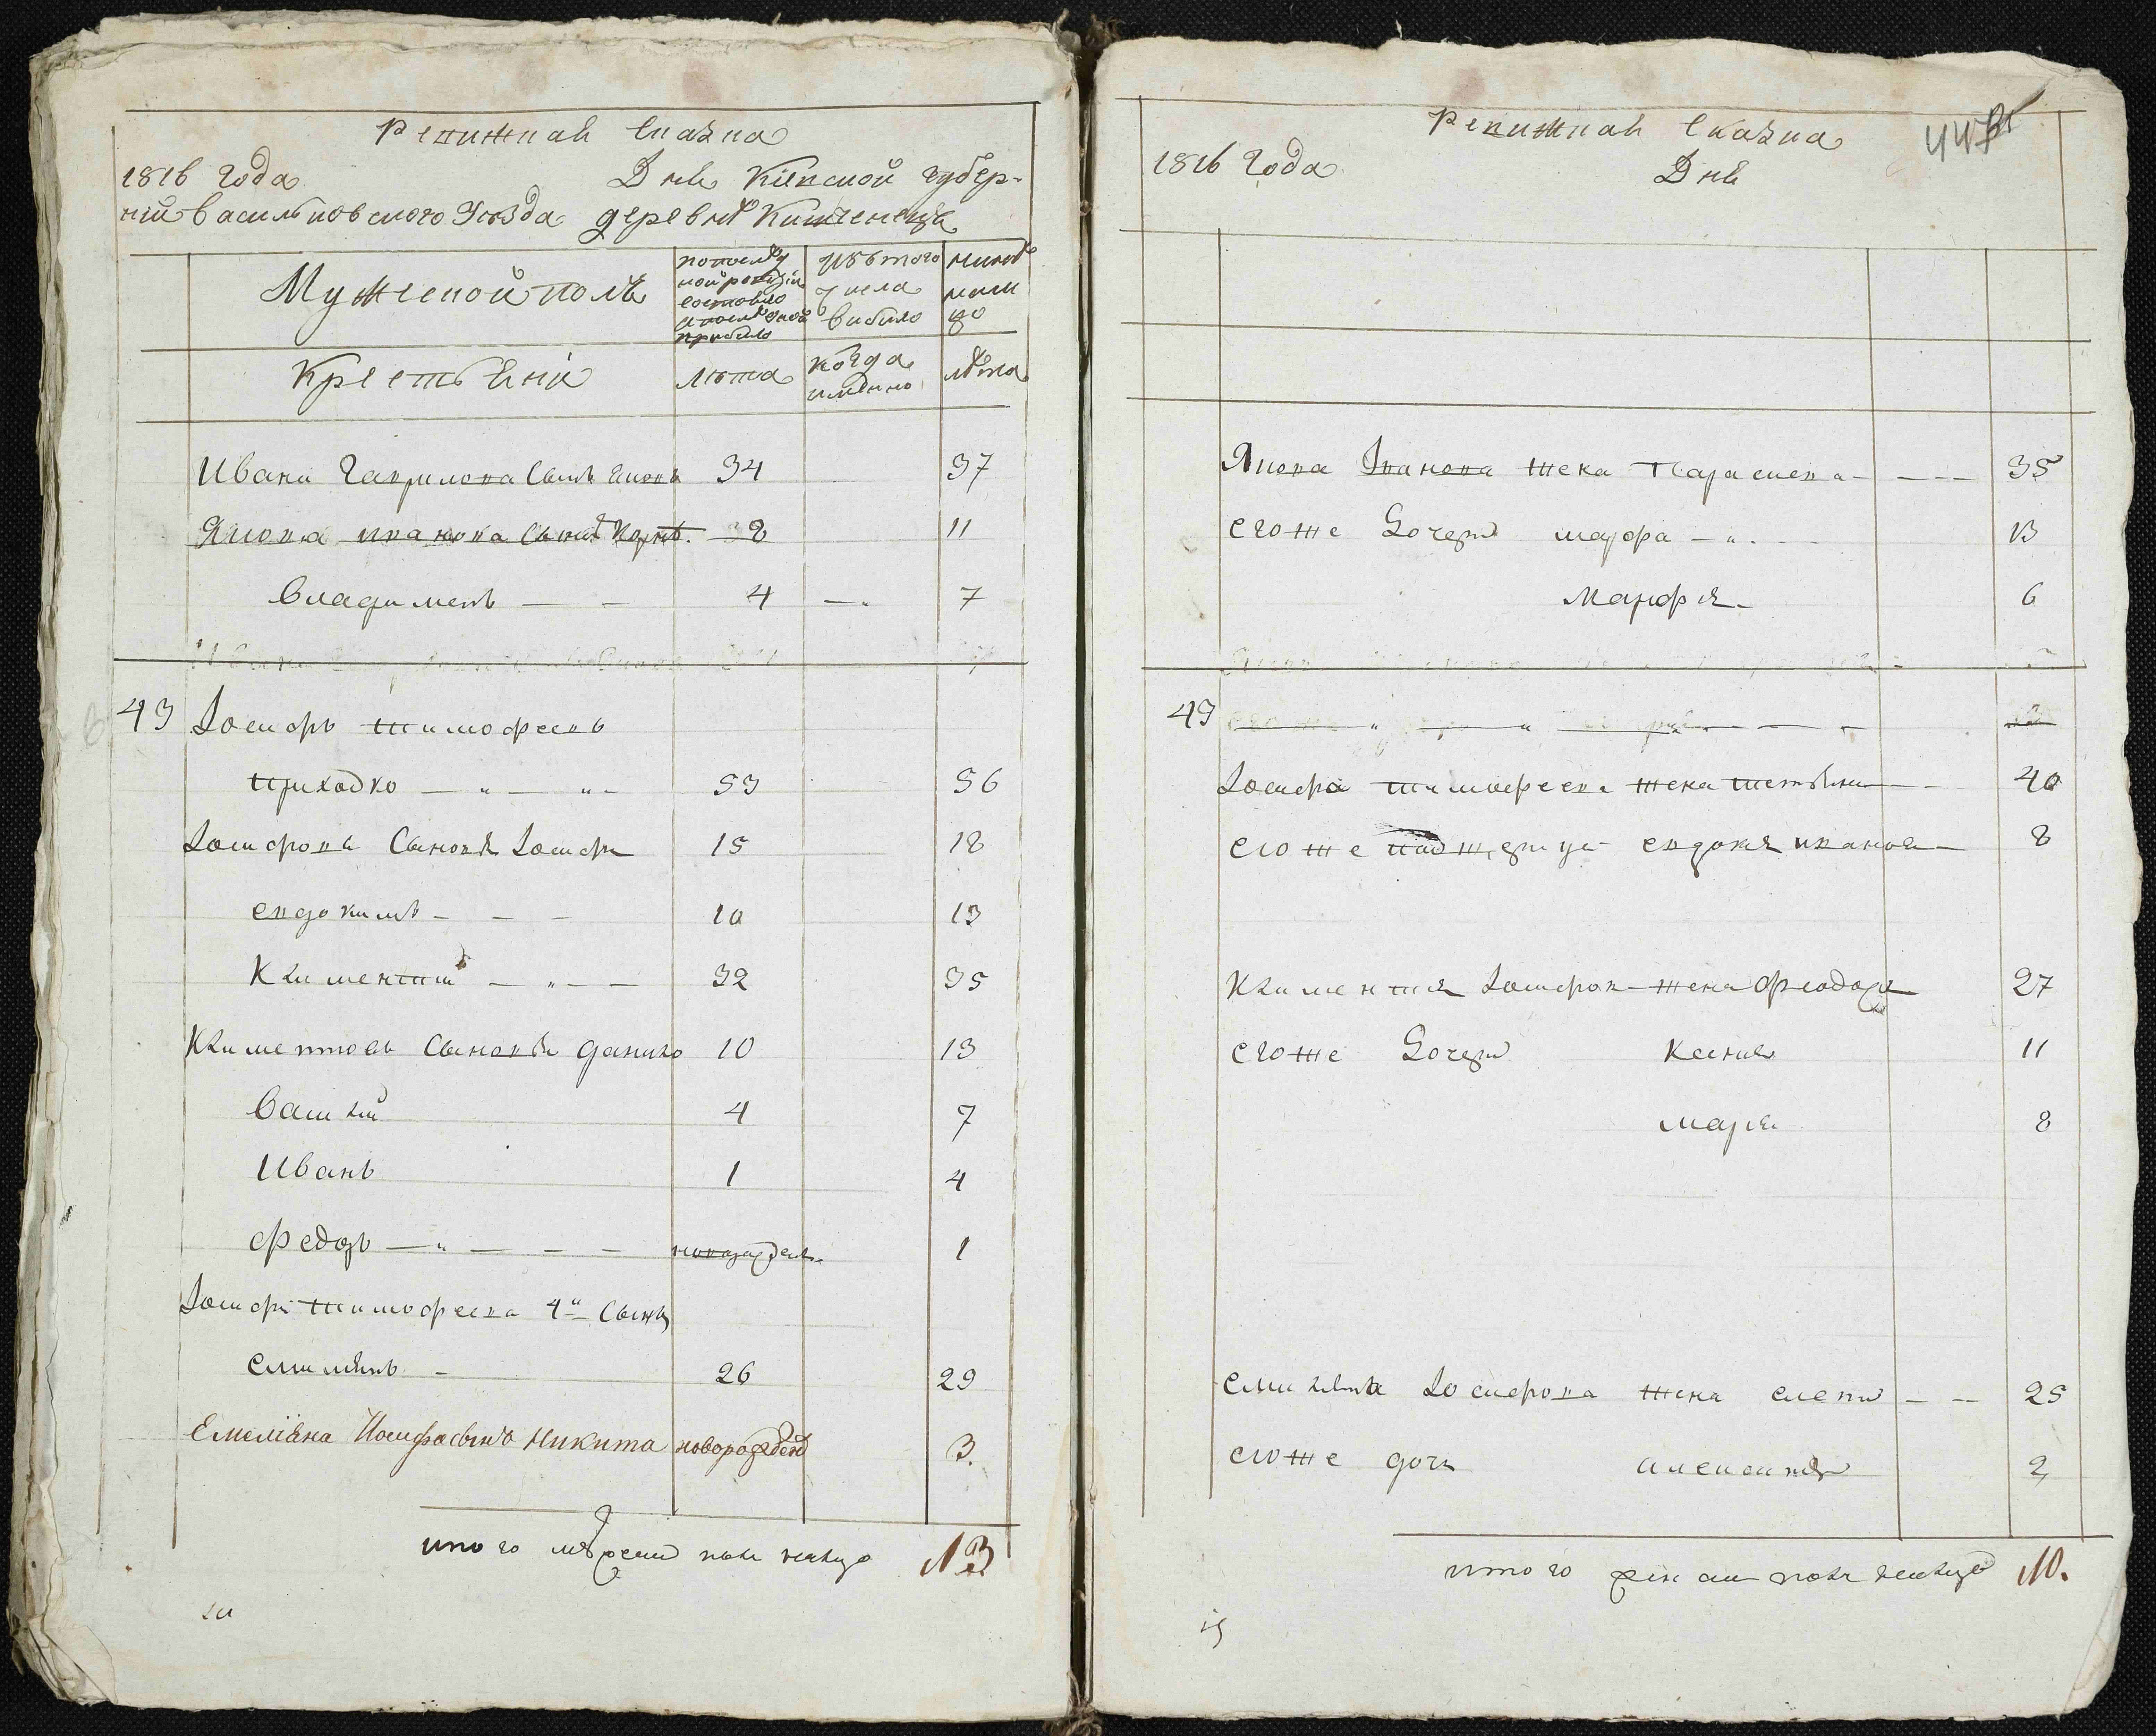 Ревижная сказка
1816 года Дня Кіевской губер-
ніи васильковского Уѣзда деревнѣ Кищенецъ
Мужеской полъ
попослѣд
ной ревизіи
состояло
и послѣ оной
прибыло
изъ того
числа
выбыло
нынѣ
нали
цо
Крестьяня
лѣта
когда
имянно
лѣта
Ивана Гаврилова Сынъ Яковъ 34 37
Якова иванова Сыновя 8 11
владимеръ — — 4 —" 7
43 Іосифъ тимофеевъ
приходко — " — " - 53 56
Іосифовы Сыновя Іосифъ 15 18
евдокимъ - - - 10 13
Климентий — " — — 32 35
Климентовы Сыновья данило 10 13
василий 4 7
Иванъ 1 4
федоръ — " — — — новорожден 1
Іосифа тимофеева 4й Сынъ
емилиянъ - 26 29
Емеліана Иосифа сынъ Никита новорожденъ 3.
итого мужеска пола налицо 13
Ревижная сказка
1816 года Дня
Якова Іванова жена Параскева - - — 35
егоже Дочери марфа - " - 13
Марфия - 6
43
Іосифа тимофеева жена — - 40
егоже падчерица евдокия иванова — 8
Климентия Іосифов жена Феодося 27
егоже Дочери Ксения 11
мария 8
емилияна Іосифова жена — — 25
егоже дочь 2
итого женска пола налицо 10.